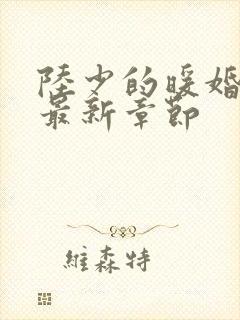 陸少的暖婚
最新章節
維森特